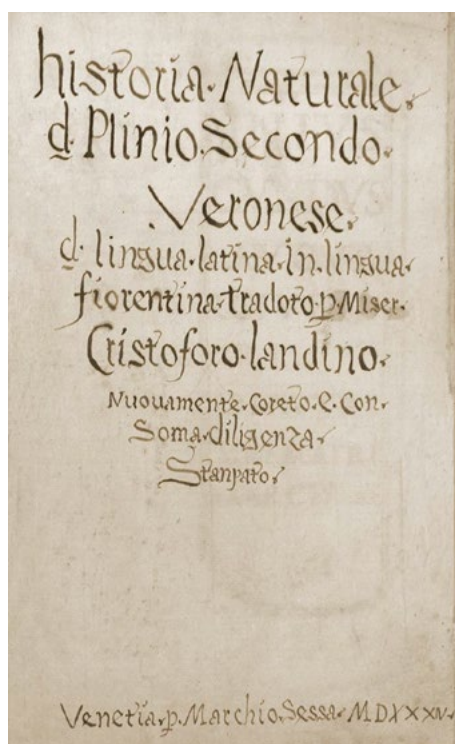 historia. Naturale.
d. Plinio. Secondo.
Veronese.
d. lingua. latina. in. lingua.
fiorentina. tradoto. p. Miser.
Cristoforo. landino.
Nuouamente. Coreto. e. Con
Soma. diligenza.
Stanpato.
Venetia. p. Marchio. Sessa. MDXXXIV.